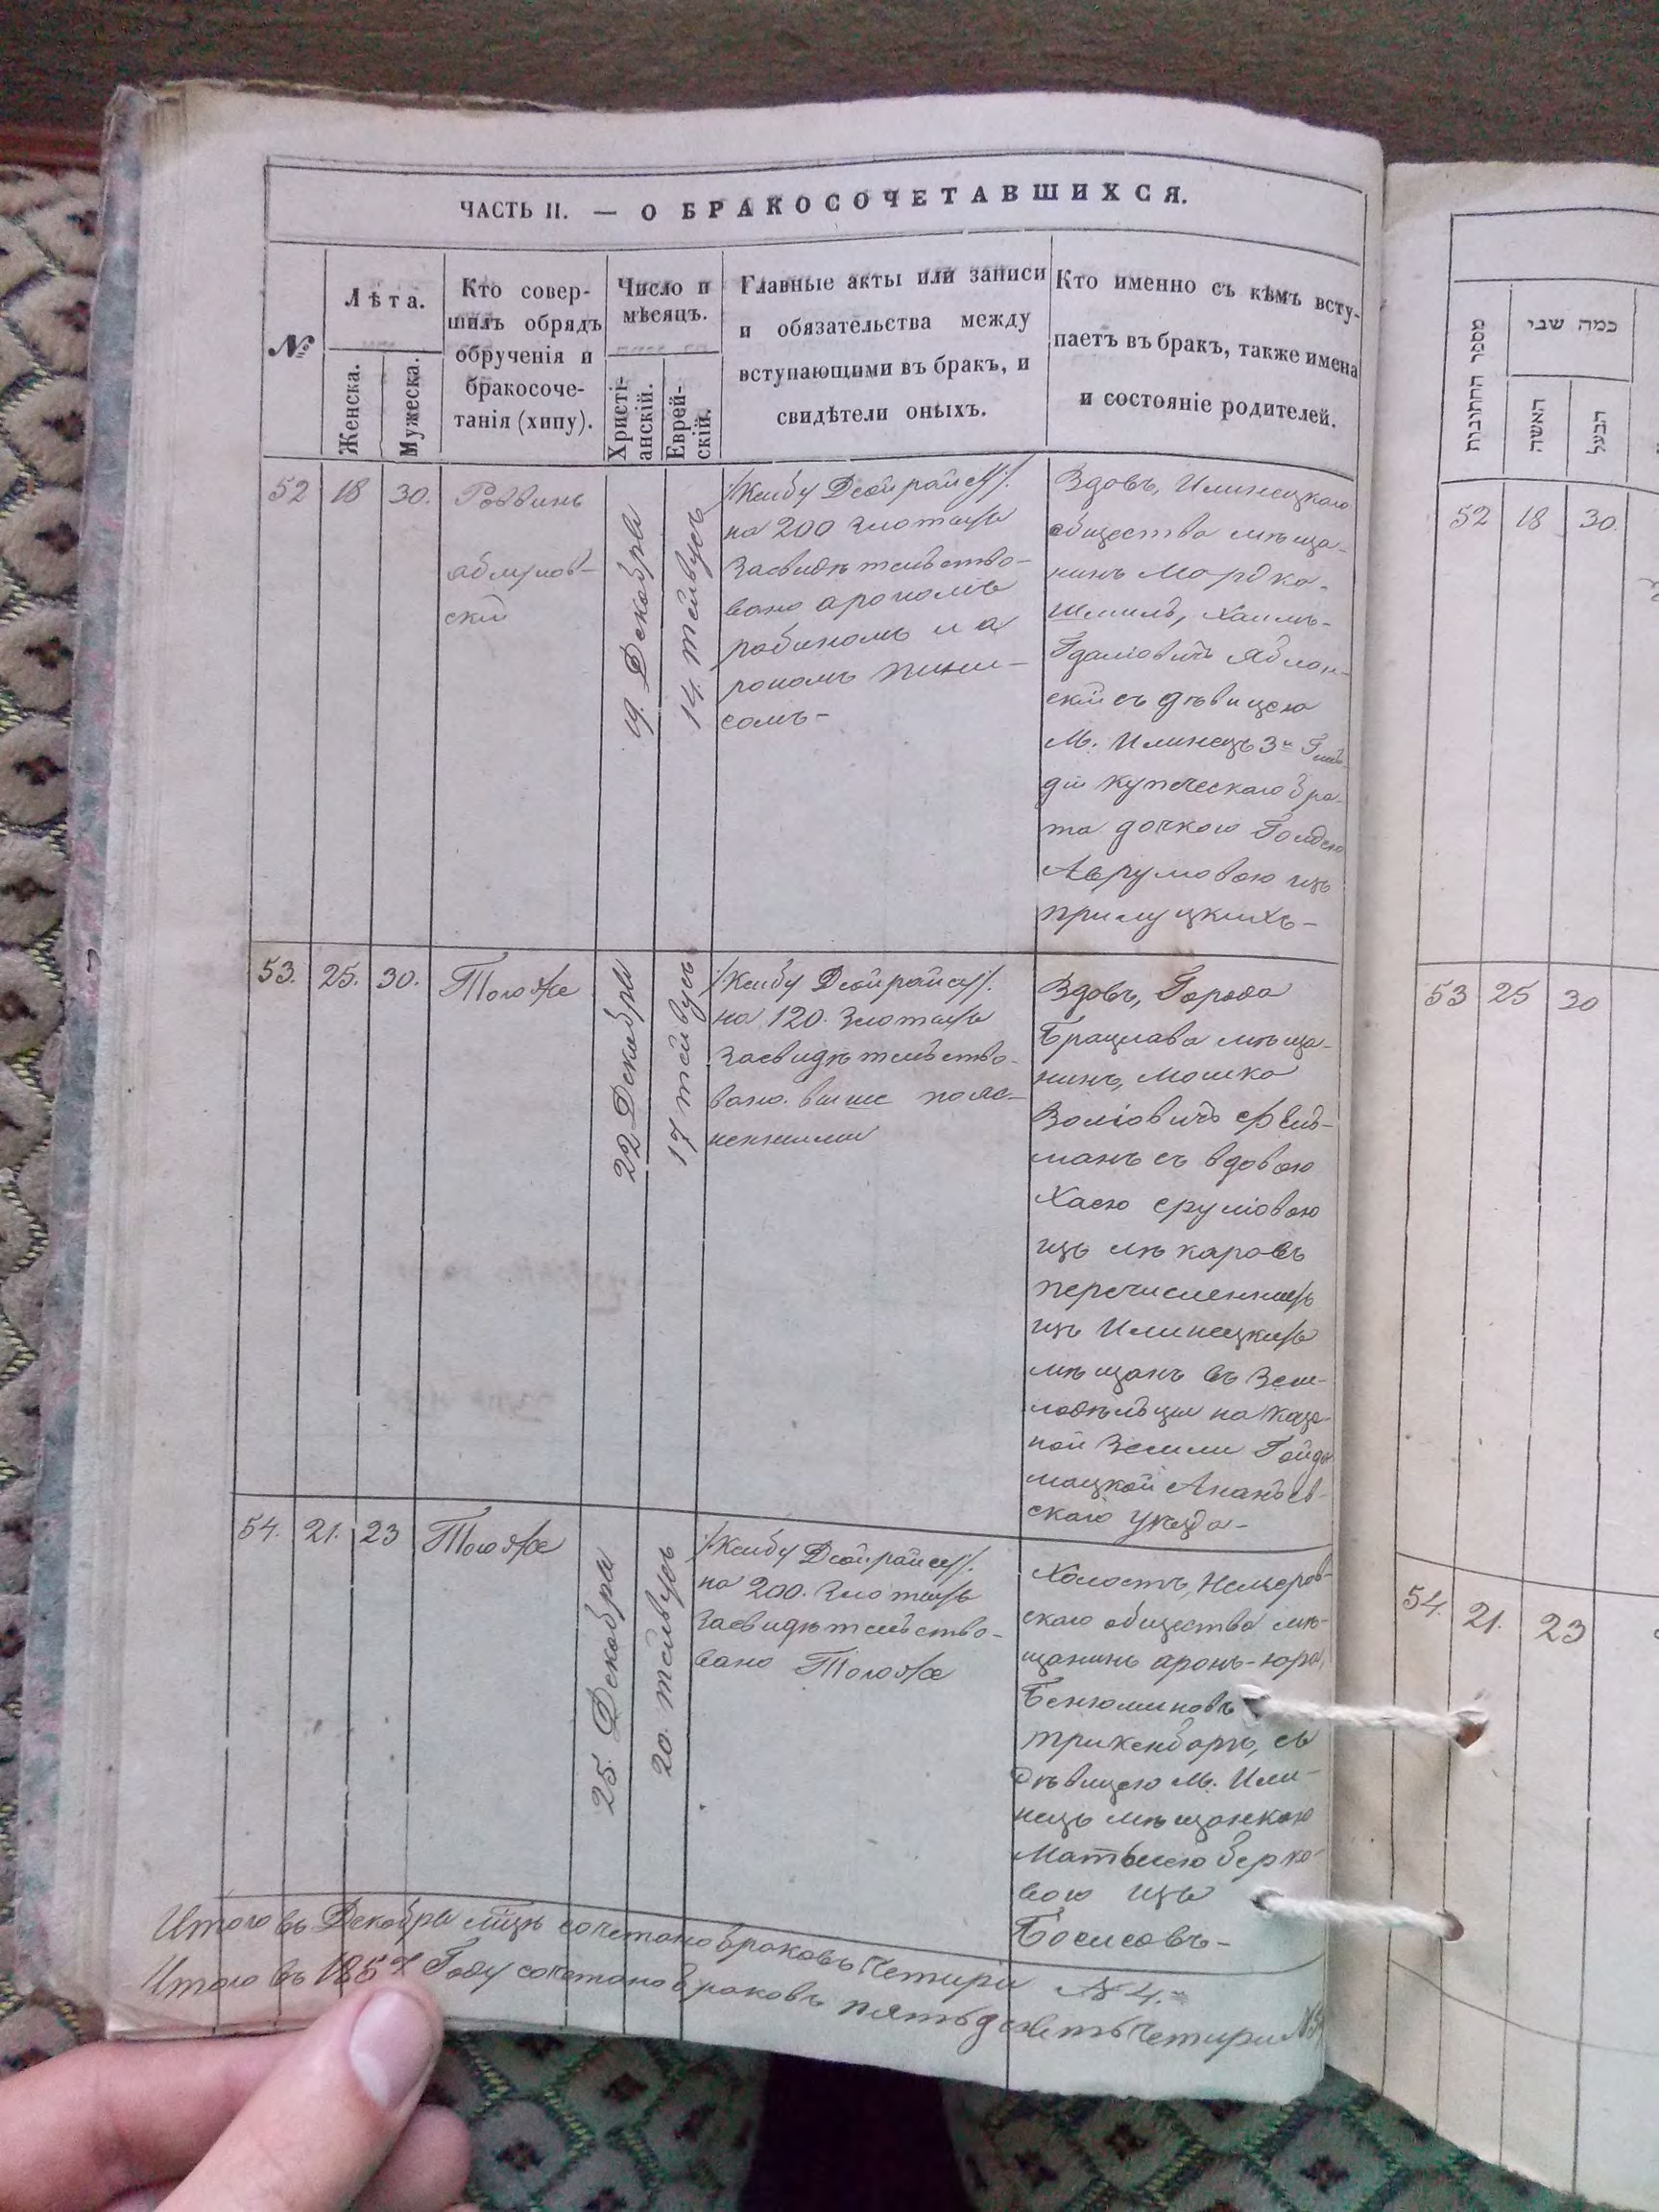 ЧАСТЬ II. — О БРАКОСОЧЕТАВШИХСЯ.
№
Лѣта.
Женска.
Мужеска.
Кто совер-
шилъ обрядъ
обрученія и
бракосоче-
танія (хипу).
Число и
мѣсяцъ.
Христі-
анскій.
Еврей-
скій.
Главные акты или записи
и обязательства между
вступающими въ бракъ, и
свидѣтели оныхъ.
Кто именно съ кѣмъ всту-
паетъ въ бракъ, также имена
и состояніе родителей.
52
18
30.
Раввинъ
19. Декабря
14. тейвусъ
на 200 злотыхъ
Засвидѣтельство-
вано арономъ
рабиномъ и а
рономъ
Вдовъ, Илинецкаго
общества мѣща-
нинъ Мордко-
Шмилъ, Хаимъ-
Яблон-
скій съ дѣвицею
М. Илинецъ 3й Гиль-
діи купеческаго бра-
та дочкою Голдею
Аврумовою изъ
прилуцкихъ-
53.
25.
30.
Тотоже
22 Декабря
17 тейвусъ
на 120. Злотыхъ
Засвидѣтельство-
вано. выше пояс-
ненными
Вдовъ, Города
Брацлава мѣща-
нинъ, Мошко
Волiовичъ Фелд-
манъ съ вдовою
Хаею Срулiовою
изъ
перечисленныхъ
изъ Илинецкихъ
мѣщанъ въ Зем-
ледѣльцы на Казе-
ной Земли Гайдо-
мацкой Ананьев-
скаго уѣзда-
54.
21.
23
Тотоже
25. Декабря
20. тейвусъ
на 200. Злотыхъ
Засвидѣтельство-
вано Тотоже
Холостъ, Немеров-
скаго общества мѣ-
щанинъ аронъ-юра,
Бенюминовъ
съ
дѣвицею М. Или-
нецъ мѣщанкою
Матлею Берко-
вою изъ
Итого въ Декабрѣ м҃цѣ сочетано браковъ Четыри № 4.
Итого въ 1857 Году сочетано браковъ пятьдесятъ Четыри №
מספר החתונות
כמה שני
האשה
הבעל
52
18
30.
53
25
30
54.
21.
23